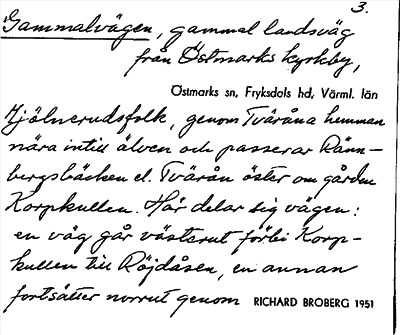 3.
Gammalvägen, gammal landsväg
från Östmarks kyrkby,
Östmarks sn, Fryksdals hd, Värml. län
Mjölnerudsfolk, genom Tväråna hemman
nära intill älven och passerar Ränn-
bergsbäcken el. Tvärån öster om gården
Korpkullen. Här delar sig vägen:
en väg går västerut förbi Korp-
kullen till Röjdåsen, en annan
fortsätter norrut genom RICHARD BROBERG 1951